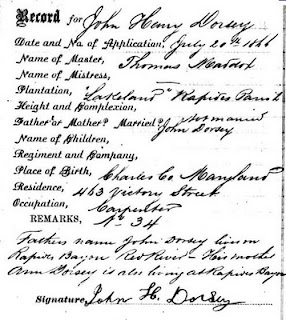 Record for John Henry Dorsey
Date and No of Application, July 20th 1866
Name of Master, Thomas Maddox
Name of Mistress,
Plantation, Lakeland Rapides Parish
Height and Complexion,
Father or Mother? Married? Not married
John Dorsey
Name of Children,
Regiment and Company,
Place of Birth, Charles Co Maryland
Residence, 463 Victory Street
Occupation, Carpenter
REMARKS, No 34
Fathers name John Dorsey
Rapides Bayou Red River - His mother
Ann Dorsey is also living at Rapides Bayou
Signature, John H. Dorsey